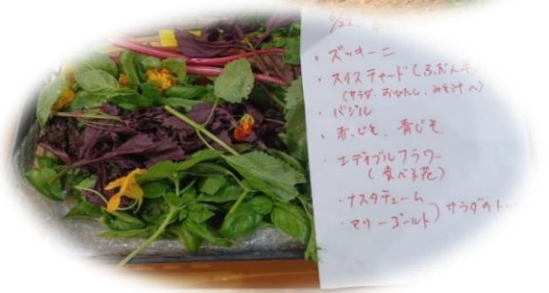 ・ズッキーニ
・スイスチャード(ふだん
(サラダ、おひたし、みそ汁へ)
・バジル
・赤じそ、青じそ
・エディブルフラワー
(食べる花)
・ナスタチューム
・マリーゴールド)サラダのト